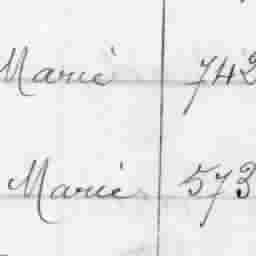 Marié 742
Marié 573